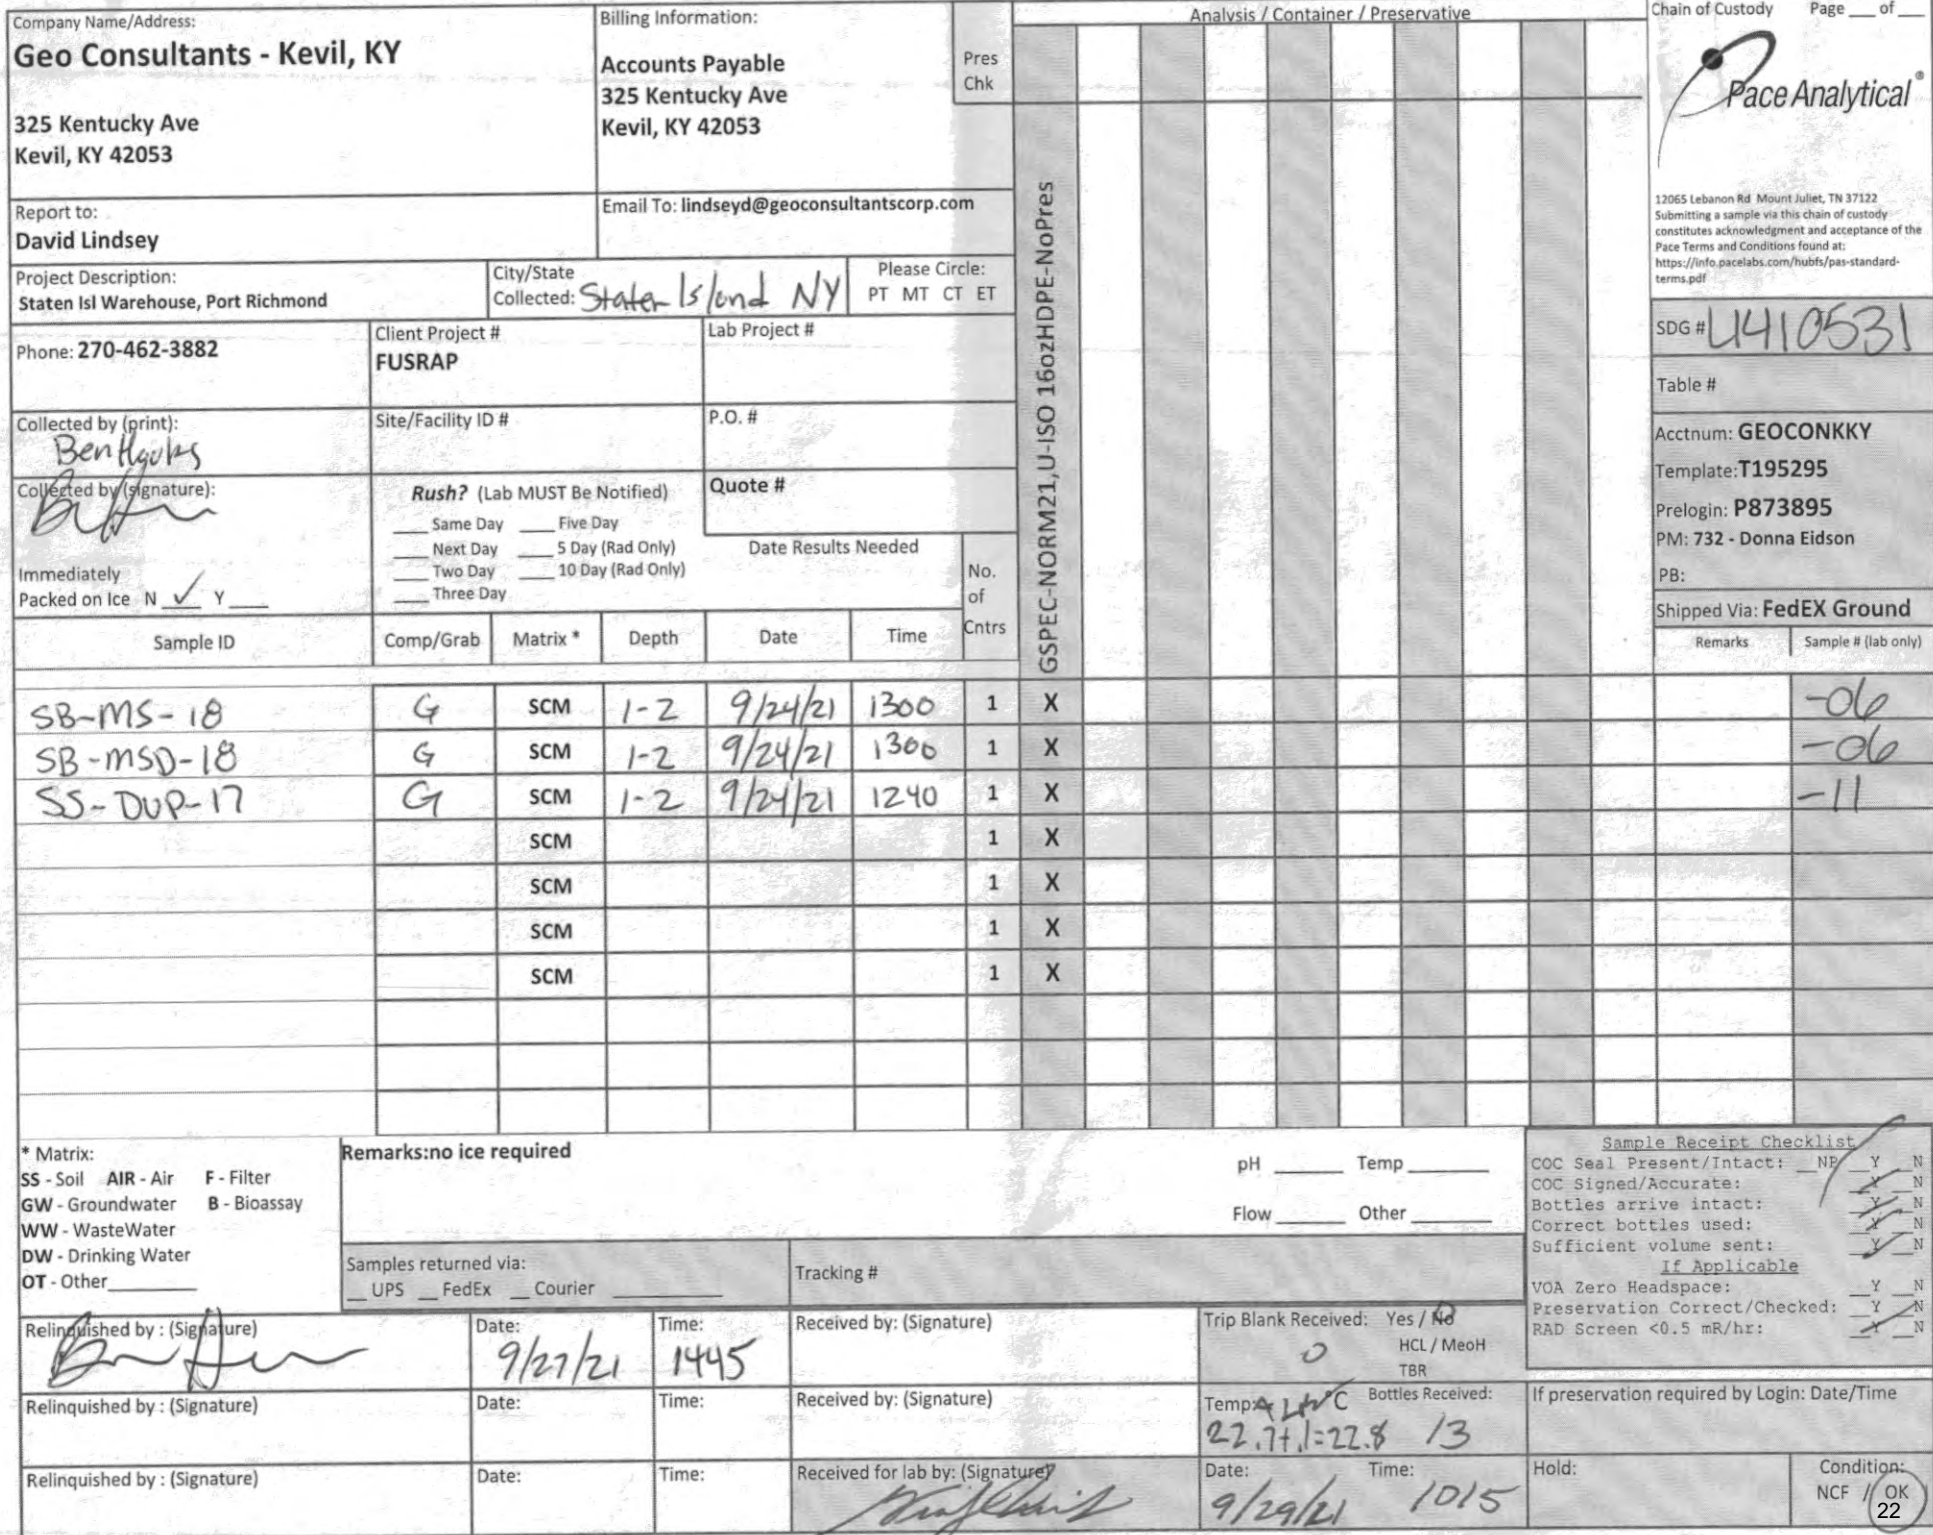 Company Name/Address:
Geo Consultants - Kevil, KY
325 Kentucky Ave
Kevil, KY 42053
Billing Information:
Accounts Payable
325 Kentucky Ave
Kevil, KY 42053
Pres
Chk
Analysis / Container / Preservative
Chain of Custody Page ___ of ___
Pace Analytical®
12065 Lebanon Rd Mount Juliet, TN 37122
Submitting a sample via this chain of custody
constitutes acknowledgment and acceptance of the
Pace Terms and Conditions found at:
https://info.pacelabs.com/hubfs/pas-standard-
terms.pdf
Report to:
David Lindsey
Email To: lindseyd@geoconsultantscorp.com
Project Description:
Staten Isl Warehouse, Port Richmond
City/State
Collected: Staten Island NY
Please Circle:
PT MT CT ET
Phone: 270-462-3882
Client Project #
FUSRAP
Lab Project #
SDG # L1410531
Table #
Collected by (print):
Ben
Site/Facility ID #
P.O. #
Acctnum: GEOCONKKY
Template: T195295
Prelogin: P873895
PM: 732 - Donna Eidson
PB:
Shipped Via: FedEX Ground
Collected by (signature):
Rush? (Lab MUST Be Notified)
___ Same Day ___ Five Day
___ Next Day ___ 5 Day (Rad Only)
___ Two Day ___ 10 Day (Rad Only)
___ Three Day
Quote #
Date Results Needed
No.
of
Cntrs
Immediately
Packed on Ice N ✓ Y ___
GSPEC-NORM21,U-ISO 16ozHDPE-NoPres
Sample ID Comp/Grab Matrix * Depth Date Time Remarks Sample # (lab only)
SB-MS-18 G SCM 1-2 9/24/21 1300 1 X -06
SB-MSD-18 G SCM 1-2 9/24/21 1300 1 X -06
SS-DUP-17 G SCM 1-2 9/24/21 1240 1 X -11
SCM 1 X
SCM 1 X
SCM 1 X
SCM 1 X
* Matrix:
SS - Soil AIR - Air F - Filter
GW - Groundwater B - Bioassay
WW - WasteWater
DW - Drinking Water
OT - Other
Remarks:no ice required
pH ___ Temp ___
Flow ___ Other ___
Samples returned via:
__ UPS __ FedEx __ Courier
Tracking #
Sample Receipt Checklist
COC Seal Present/Intact: __NP __Y __N
COC Signed/Accurate: __Y __N
Bottles arrive intact: __Y __N
Correct bottles used: __Y __N
Sufficient volume sent: __Y __N
If Applicable
VOA Zero Headspace: __Y __N
Preservation Correct/Checked: __Y __N
RAD Screen <0.5 mR/hr: __Y __N
Relinquished by : (Signature)
Date: 9/27/21
Time: 1445
Received by: (Signature)
Trip Blank Received: Yes / No
0
HCL / MeoH
TBR
Relinquished by : (Signature)
Date:
Time:
Received by: (Signature)
Temp: °C
22.7+.1=22.8
Bottles Received:
13
If preservation required by Login: Date/Time
Relinquished by : (Signature)
Date:
Time:
Received for lab by: (Signature)
Date: 9/29/21
Time: 1015
Hold:
Condition:
NCF / OK
22